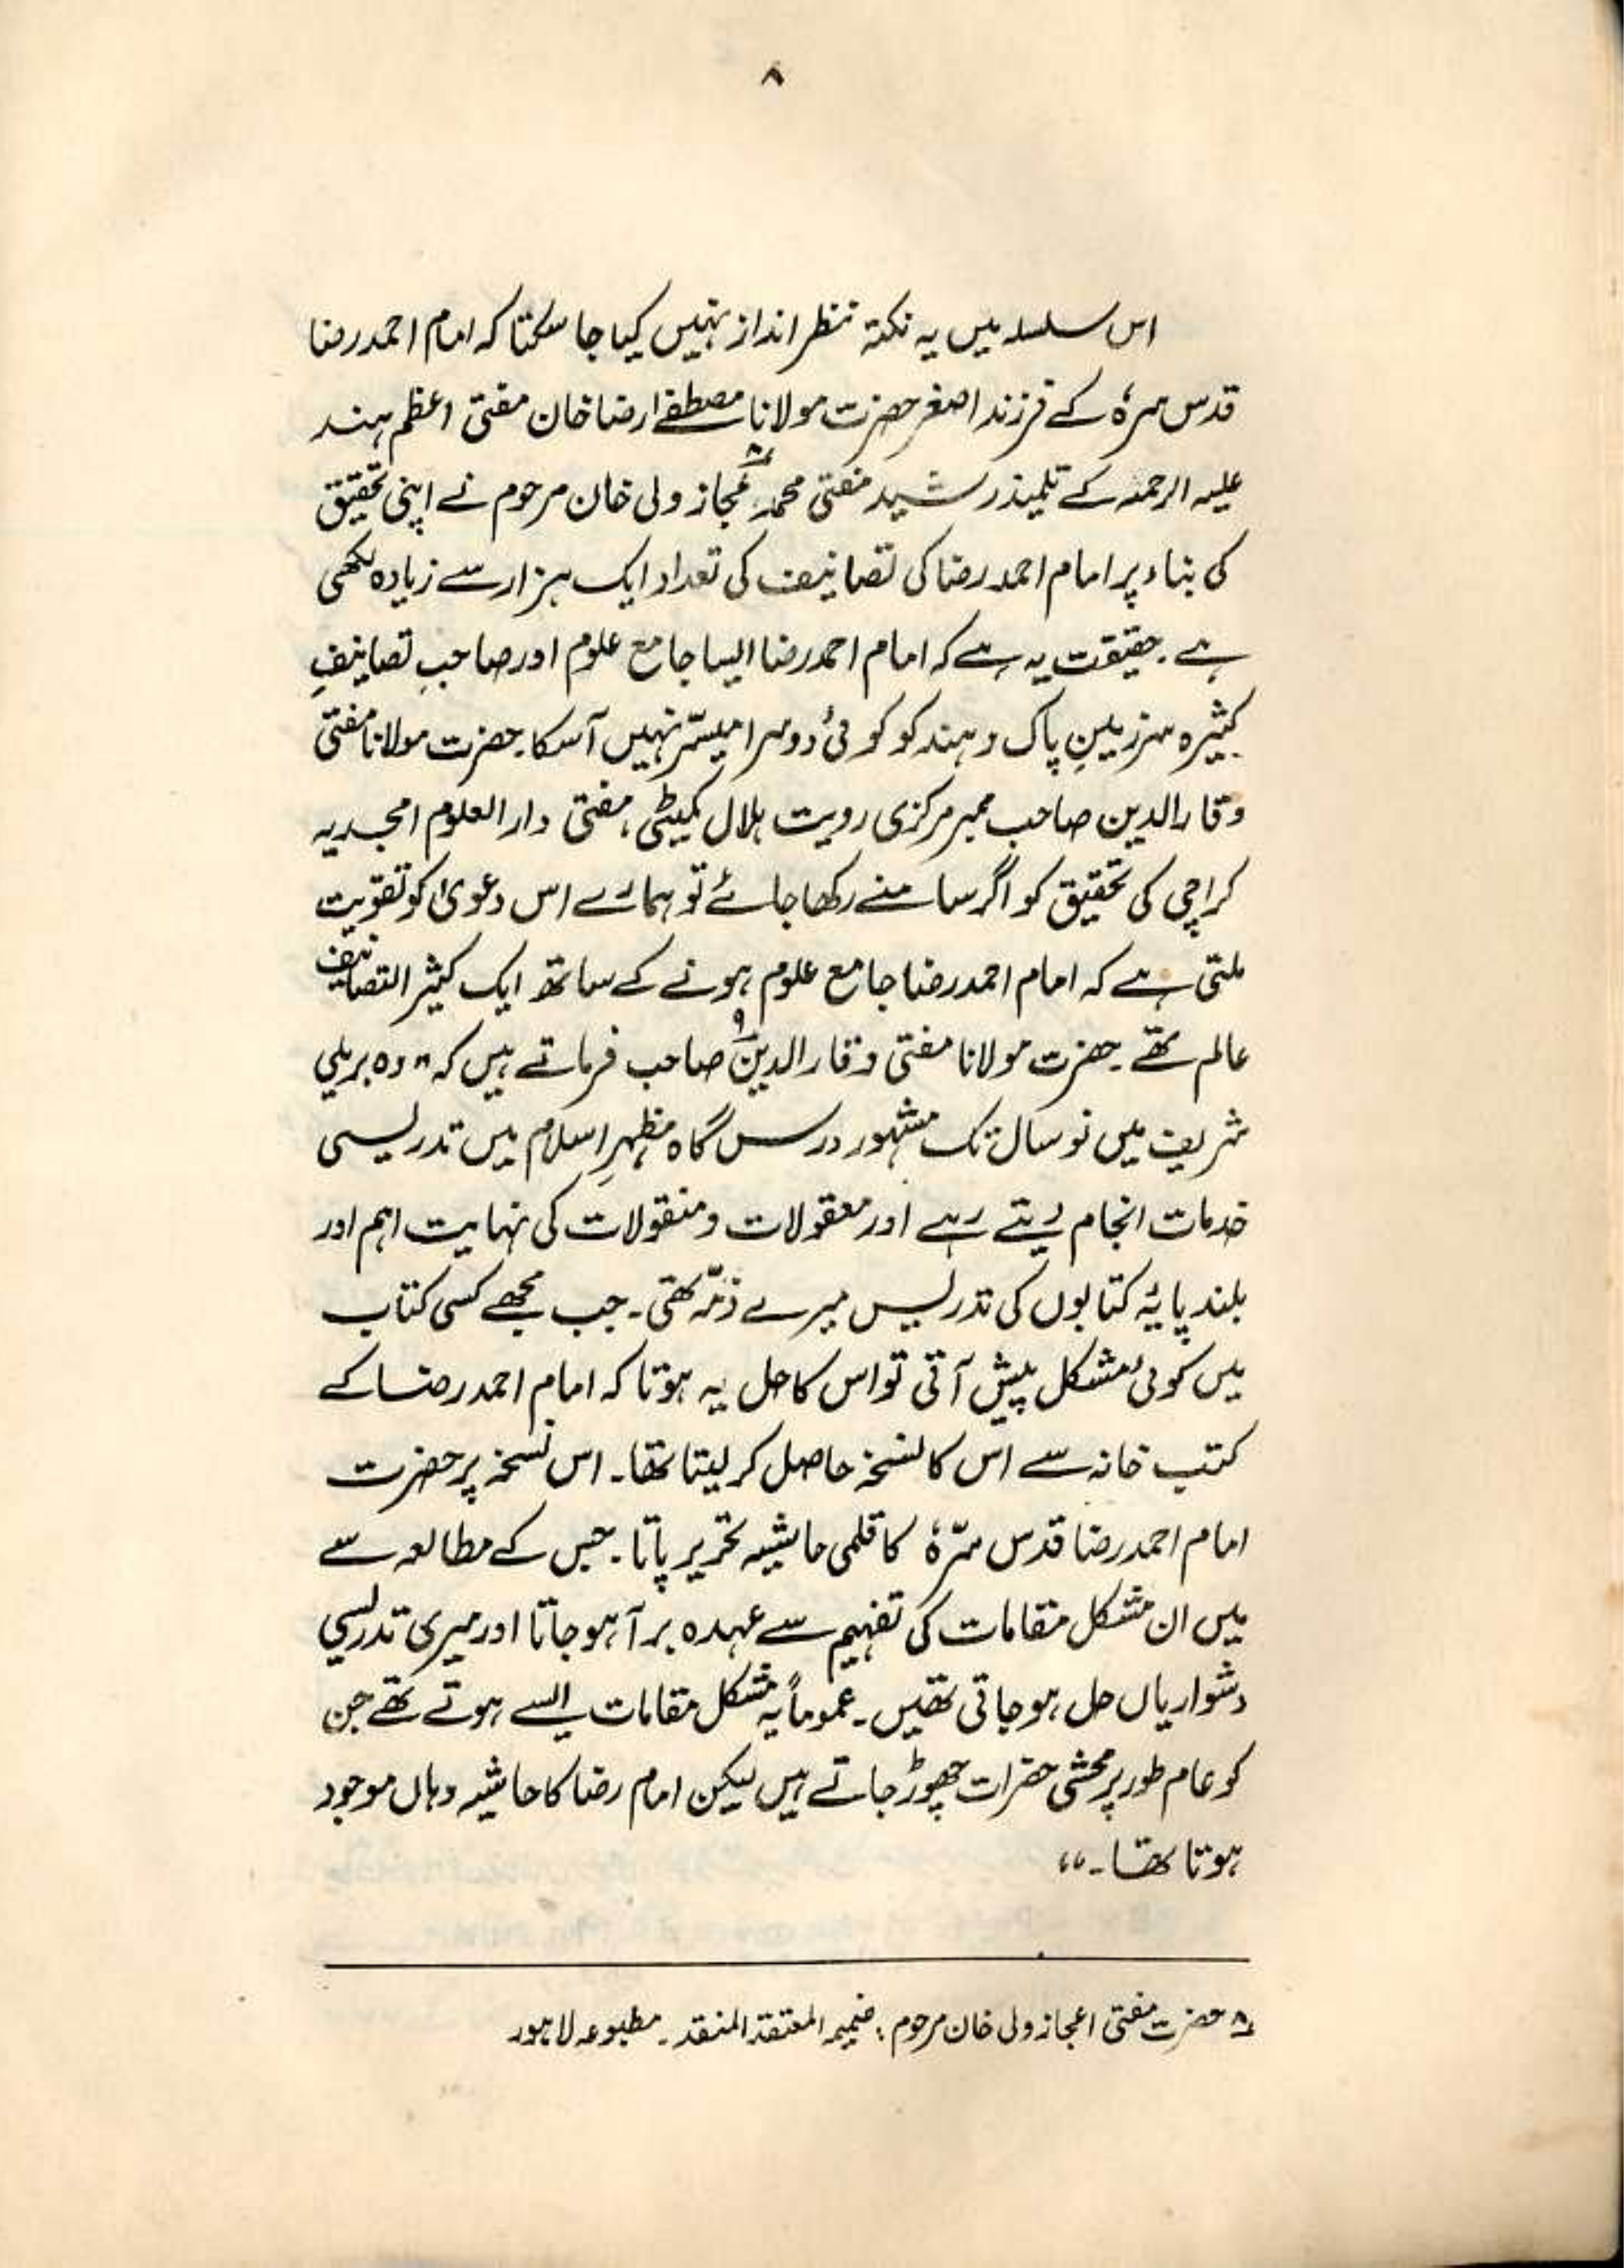 ۸
اس سلسلہ میں یہ نکتہ نظر انداز نہیں کیا جا سکتا کہ امام احمد رضا
قدس سرہٗ کے فرزند اصغر حضرت مولانا مصطفےٰ رضا خان مفتی اعظم ہند
علیہ الرحمہ کے تلمیذ رشید مفتی محمد اعجاز ولی خان مرحوم نے اپنی تحقیق
کی بناء پر امام احمد رضا کی تصانیف کی تعداد ایک ہزار سے زیادہ لکھی
ہے۔ حقیقت یہ ہے کہ امام احمد رضا ایسا جامع علوم اور صاحبِ تصانیفِ
کثیرہ سرزمینِ پاک و ہند کو کوئی دوسرا میسّر نہیں آسکا۔ حضرت مولانا مفتی
وقار الدین صاحب ممبر مرکزی رویت ہلال کمیٹی، مفتی دار العلوم امجدیہ
کراچی کی تحقیق کو اگر سامنے رکھا جائے تو ہمارے اس دعویٰ کو تقویت
ملتی ہے کہ امام احمد رضا جامع علوم ہونے کے ساتھ ایک کثیر التصانیف
عالم تھے۔ حضرت مولانا مفتی وقار الدین۹ صاحب فرماتے ہیں کہ "وہ بریلی
شریف میں نو سال تک مشہور درس گاہ مظہرِ اسلام میں تدریسی
خدمات انجام دیتے رہے اور معقولات و منقولات کی نہایت اہم اور
بلند پایۂ کتابوں کی تدریس میرے ذمّہ تھی۔ جب مجھے کسی کتاب
میں کوئی مشکل پیش آتی تو اس کا حل یہ ہوتا کہ امام احمد رضا کے
کتب خانہ سے اس کا نسخہ حاصل کر لیتا تھا۔ اس نسخہ پر حضرت
امام احمد رضا قدس سرّہٗ کا قلمی حاشیہ تحریر پاتا۔ جس کے مطالعہ سے
میں ان مشکل مقامات کی تفہیم سے عہدہ برآ ہو جاتا اور میری تدریسی
دشواریاں حل ہو جاتی تھیں۔ عموماً یہ مشکل مقامات ایسے ہوتے تھے جن
کو عام طور پر محشی حضرات چھوڑ جاتے ہیں لیکن امام رضا کا حاشیہ وہاں موجود
ہوتا تھا۔"
۸ حضرت مفتی اعجاز ولی خان مرحوم : ضمیمہ المعتقد المنقد۔ مطبوعہ لاہور